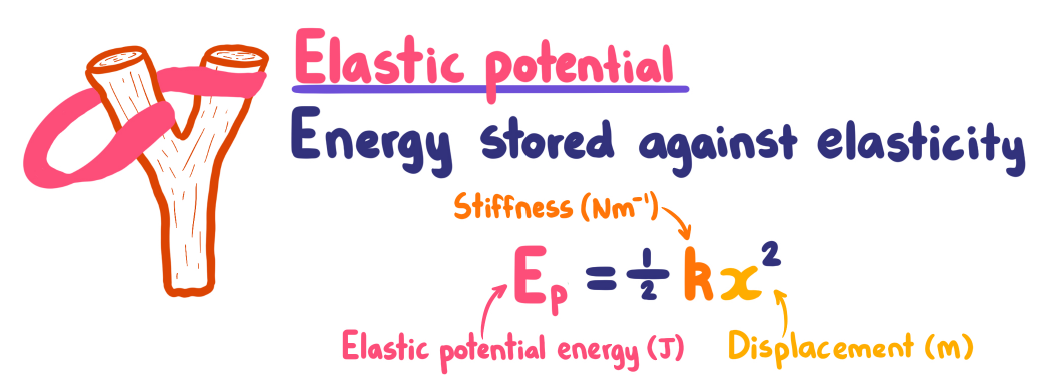 Elastic potential
Energy stored against elasticity
Stiffness (Nm⁻¹)
Eₚ = ½ kx²
Elastic potential energy (J)
Displacement (m)